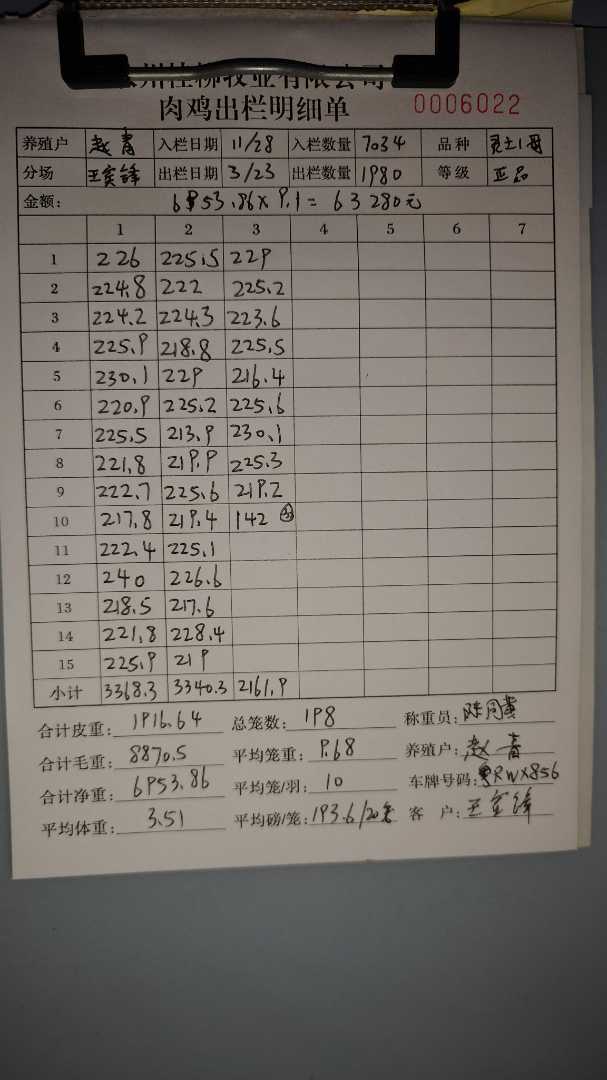 州桂柳牧业有限公司
肉鸡出栏明细单 0006022
养殖户 赵青 入栏日期 11/28 入栏数量 7034 品种 灵土1母
分场 王实锋 出栏日期 3/23 出栏数量 1980 等级 正品
金额: 6953.86×9.1=63280元
1 2 3 4 5 6 7
1 226 225.5 229
2 224.8 222 225.2
3 224.2 224.3 223.6
4 225.9 218.8 225.5
5 230.1 229 216.4
6 220.9 225.2 225.6
7 225.5 213.9 230.1
8 221.8 219.9 225.3
9 222.7 225.6 219.2
10 217.8 219.4 142
11 222.4 225.1
12 240 226.6
13 218.5 217.6
14 221.8 228.4
15 225.9 219
小计 3368.3 3340.3 2161.9
合计皮重: 1916.64 总笼数: 198 称重员:
合计毛重: 8870.5 平均笼重: 9.68 养殖户: 赵青
合计净重: 6953.86 平均笼/羽: 10 车牌号码: 粤RWX856
平均体重: 3.51 平均磅/笼: 193.6/20笼 客户: 王实锋